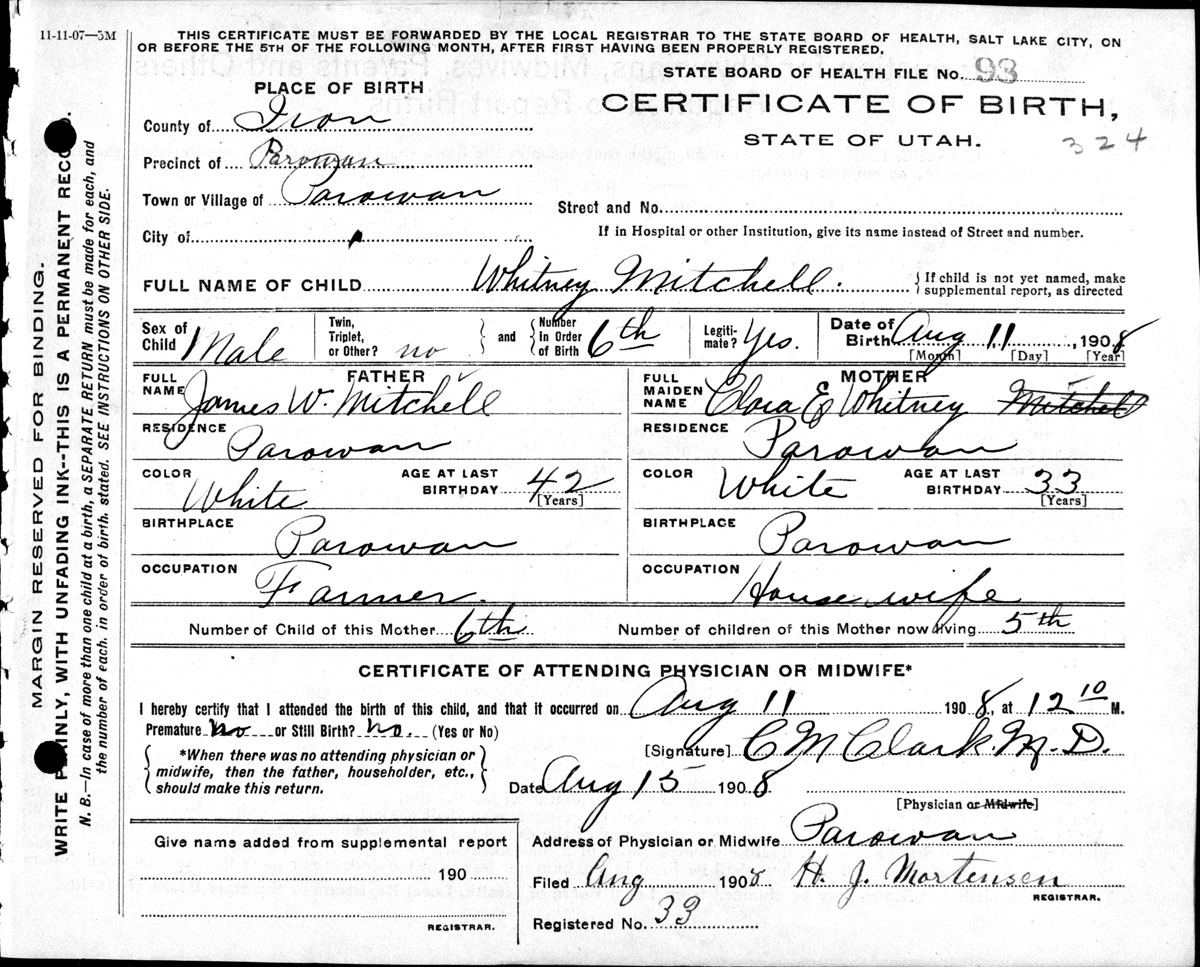 11-11-07—5M
THIS CERTIFICATE MUST BE FORWARDED BY THE LOCAL REGISTRAR TO THE STATE BOARD OF HEALTH, SALT LAKE CITY, ON
OR BEFORE THE 5TH OF THE FOLLOWING MONTH, AFTER FIRST HAVING BEEN PROPERLY REGISTERED.
STATE BOARD OF HEALTH FILE No. 93
CERTIFICATE OF BIRTH,
STATE OF UTAH.
324
PLACE OF BIRTH
County of Iron
Precinct of Parowan
Town or Village of Parowan
City of
Street and No.
If in Hospital or other Institution, give its name instead of Street and number.
FULL NAME OF CHILD Whitney Mitchell. {If child is not yet named, make
supplemental report, as directed
Sex of Child Male
Twin, Triplet, or Other? no } and { Number in Order of Birth 6th
Legiti-mate? Yes.
Date of Birth Aug 11, 1908
[Month] [Day] [Year]
FATHER
FULL NAME James W. Mitchell
RESIDENCE Parowan
COLOR White AGE AT LAST BIRTHDAY 42 [Years]
BIRTHPLACE Parowan
OCCUPATION Farmer.
MOTHER
FULL MAIDEN NAME Clora E Whitney Mitchell
RESIDENCE Parowan
COLOR White AGE AT LAST BIRTHDAY 33 [Years]
BIRTHPLACE Parowan
OCCUPATION House wife
Number of Child of this Mother 6th Number of children of this Mother now living 5th
CERTIFICATE OF ATTENDING PHYSICIAN OR MIDWIFE*
I hereby certify that I attended the birth of this child, and that it occurred on Aug 11 1908, at 12 10 M.
Premature no or Still Birth? no. (Yes or No)
*When there was no attending physician or
midwife, then the father, householder, etc.,
should make this return.
[Signature] C M Clark. M. D.
Date Aug 15 1908
[Physician or Midwife]
Give name added from supplemental report
190
REGISTRAR.
Address of Physician or Midwife Parowan
Filed Aug 1908 H. J. Mortensen
REGISTRAR.
Registered No. 33
MARGIN RESERVED FOR BINDING.
WRITE PLAINLY, WITH UNFADING INK--THIS IS A PERMANENT RECO
N. B.—In case of more than one child at a birth, a SEPARATE RETURN must be made for each, and
the number of each. in order of birth. stated. SEE INSTRUCTIONS ON OTHER SIDE.